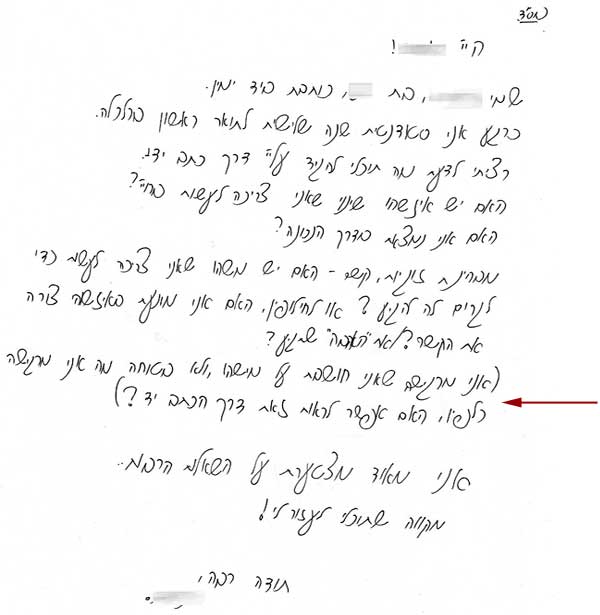 בס"ד
היי !
שמי , בת , כותבת ביד ימין.
כרגע אני סטודנטית שנה שלישית לתואר ראשון בכלכלה.
רציתי לדעת מה תוכלי להגיד עליי דרך כתב ידי.
האם יש איזשהו שינוי שאני צריכה לעשות בחיי?
האם אני נמצאת בדרך הנכונה?
מבחינת זוגיות, קשר - האם יש משהו שאני צריכה לעשות כדי
לגרום לה להגיע? או לחילופין, האם אני מונעת באיזשהי צורה
את הקשר?/את "האהבה" שתגיע?
(אני מרגישה שאני חושבת על מישהו, ולא בטוחה מה אני מרגישה
כלפיו, האם אפשר לראות זאת דרך הכתב יד?)
אני מאוד מצטערת על השאלות הרבות.
מקווה שתוכלי לעזור לי!
תודה רבה,